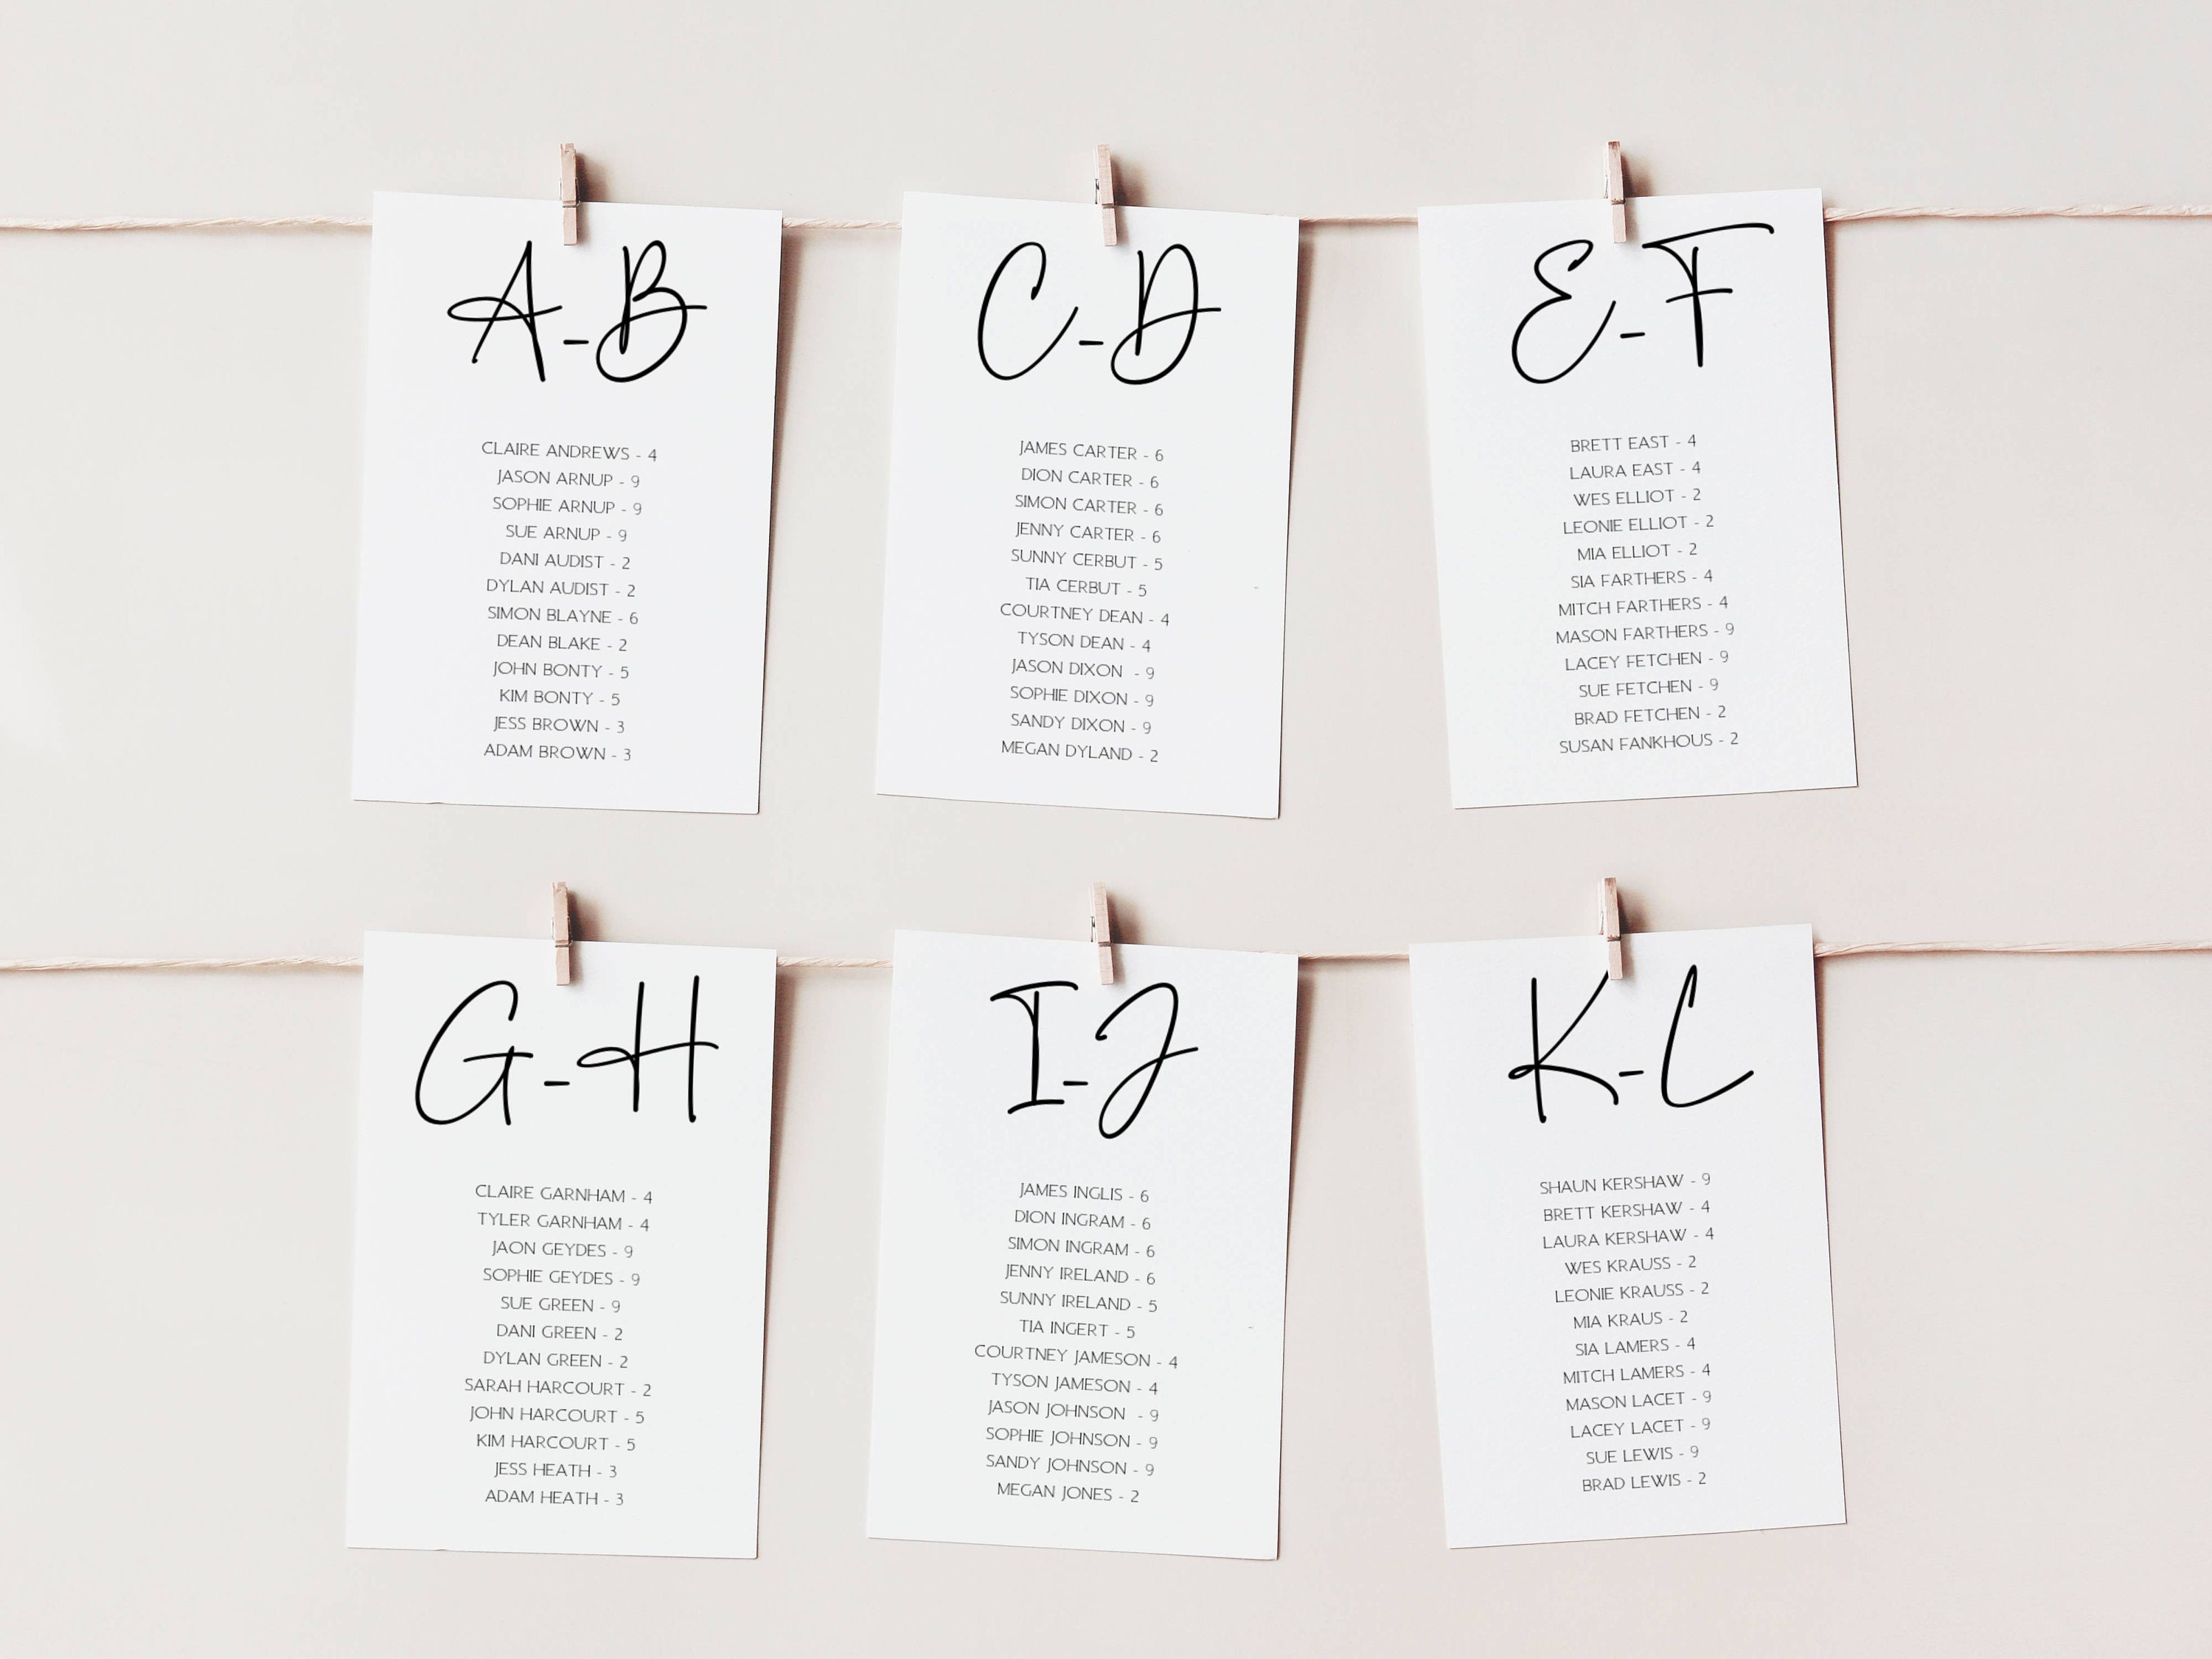 A-B
CLAIRE ANDREWS - 4
JASON ARNUP - 9
SOPHIE ARNUP - 9
SUE ARNUP - 9
DANI AUDIST - 2
DYLAN AUDIST - 2
SIMON BLAYNE - 6
DEAN BLAKE - 2
JOHN BONTY - 5
KIM BONTY - 5
JESS BROWN - 3
ADAM BROWN - 3
C-D
JAMES CARTER - 6
DION CARTER - 6
SIMON CARTER - 6
JENNY CARTER - 6
SUNNY CERBUT - 5
TIA CERBUT - 5
COURTNEY DEAN - 4
TYSON DEAN - 4
JASON DIXON - 9
SOPHIE DIXON - 9
SANDY DIXON - 9
MEGAN DYLAND - 2
E-F
BRETT EAST - 4
LAURA EAST - 4
WES ELLIOT - 2
LEONIE ELLIOT - 2
MIA ELLIOT - 2
SIA FARTHERS - 4
MITCH FARTHERS - 4
MASON FARTHERS - 9
LACEY FETCHEN - 9
SUE FETCHEN - 9
BRAD FETCHEN - 2
SUSAN FANKHOUS - 2
G-H
CLAIRE GARNHAM - 4
TYLER GARNHAM - 4
JAON GEYDES - 9
SOPHIE GEYDES - 9
SUE GREEN - 9
DANI GREEN - 2
DYLAN GREEN - 2
SARAH HARCOURT - 2
JOHN HARCOURT - 5
KIM HARCOURT - 5
JESS HEATH - 3
ADAM HEATH - 3
I-J
JAMES INGLIS - 6
DION INGRAM - 6
SIMON INGRAM - 6
JENNY IRELAND - 6
SUNNY IRELAND - 5
TIA INGERT - 5
COURTNEY JAMESON - 4
TYSON JAMESON - 4
JASON JOHNSON - 9
SOPHIE JOHNSON - 9
SANDY JOHNSON - 9
MEGAN JONES - 2
K-L
SHAUN KERSHAW - 9
BRETT KERSHAW - 4
LAURA KERSHAW - 4
WES KRAUSS - 2
LEONIE KRAUSS - 2
MIA KRAUS - 2
SIA LAMERS - 4
MITCH LAMERS - 4
MASON LACET - 9
LACEY LACET - 9
SUE LEWIS - 9
BRAD LEWIS - 2